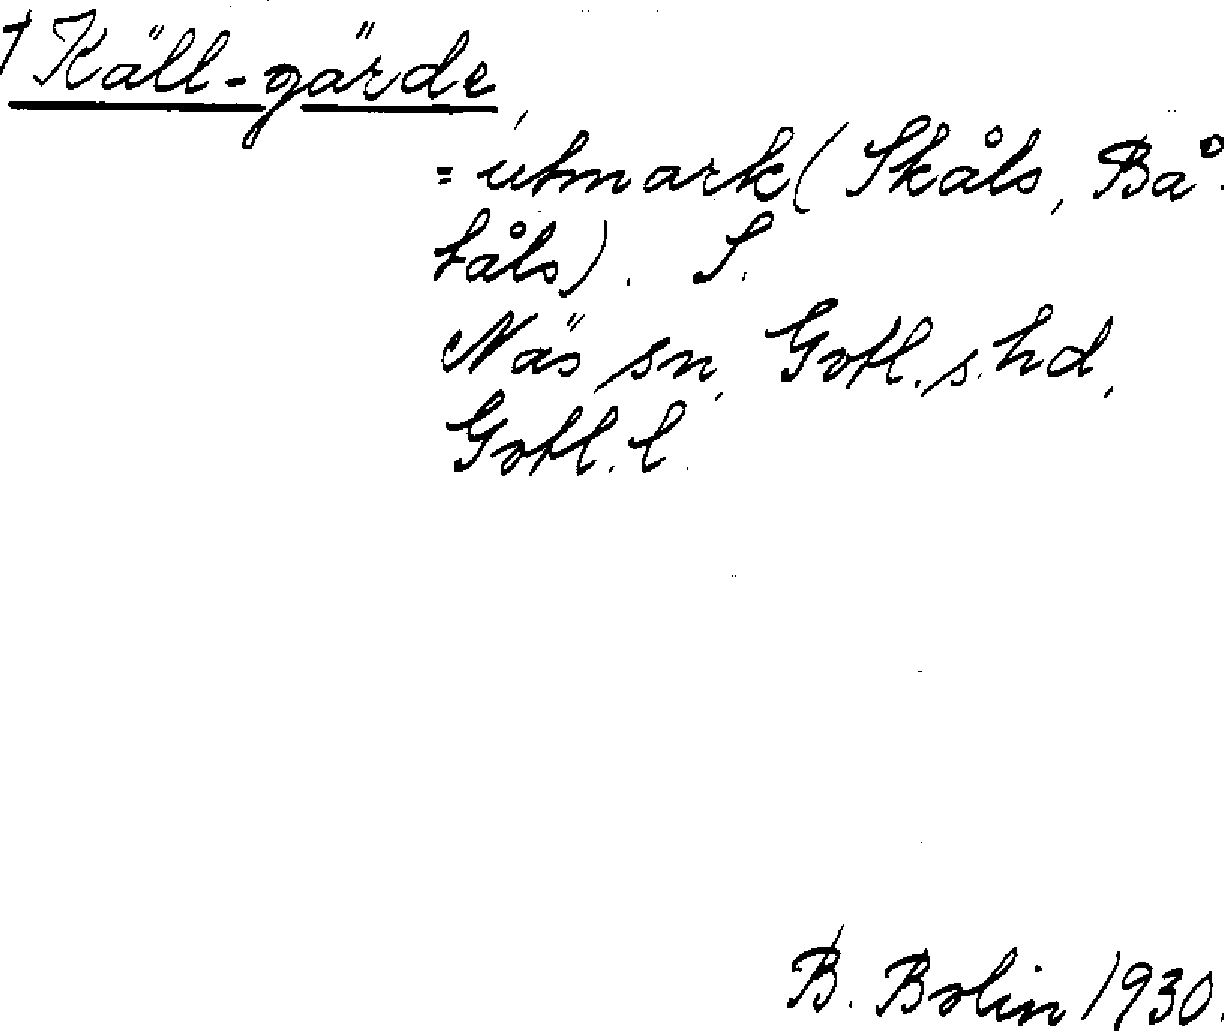 † Käll-gärde,
= utmark (Skåls, Bå-
tåls). S.
Näs sn, Gotl. s. hd,
Gotl. l.
B. Bolin 1930.